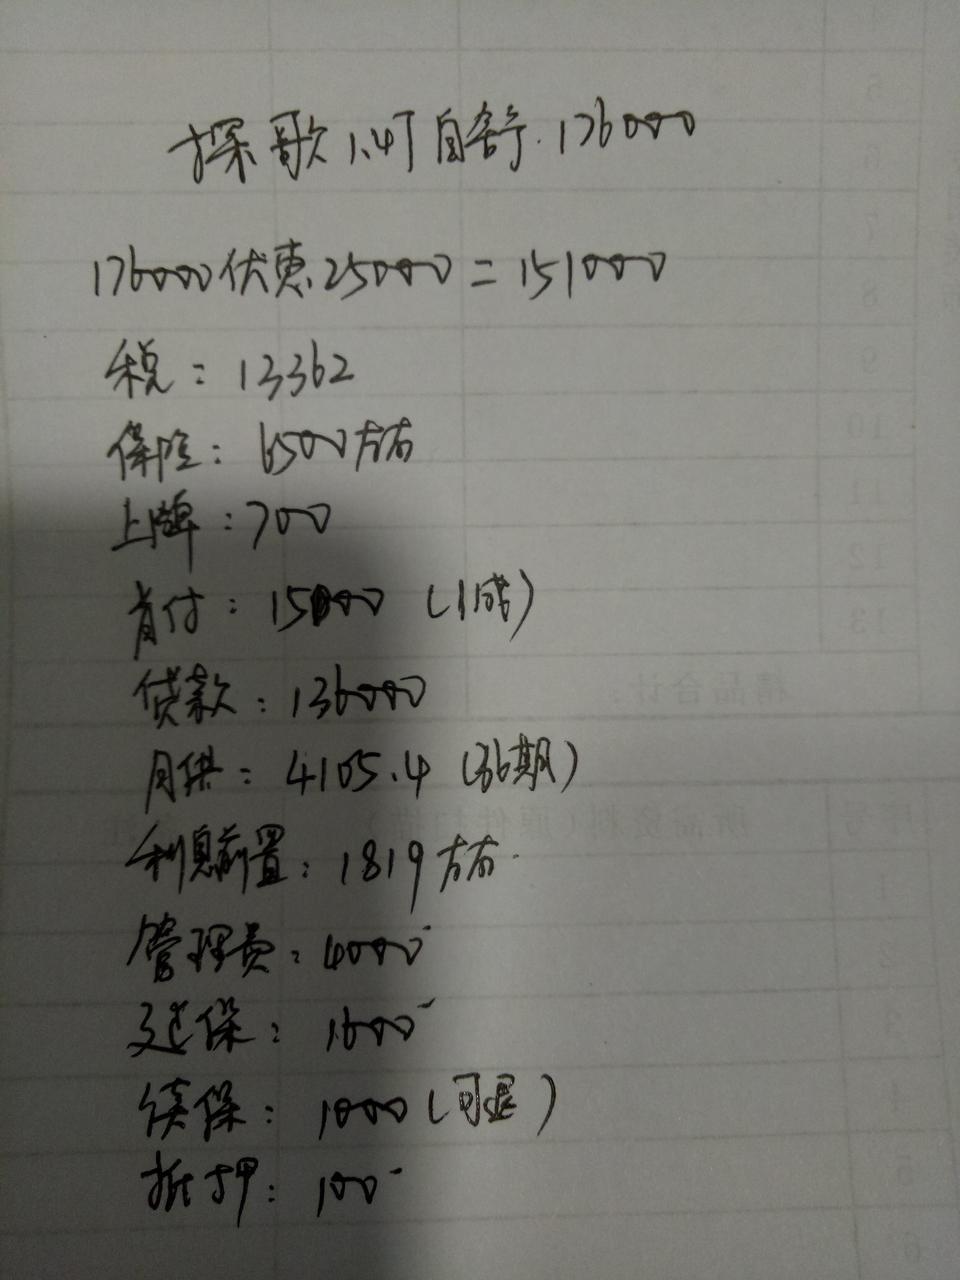 探歌1.4T自舒.176000
176000优惠25000=151000
税:13362
保险:6500左右
上牌:700
首付:15000(1成)
贷款:136000
月供:4105.4(36期)
利息前置:1819左右
管理费:4000
延保:1600
续保:1000(可退)
抵押:100
5
6
7
8
9
10
11
12
13
精品合计:
序号
所需资料(原件扫描)
1
2
3
4
5
6